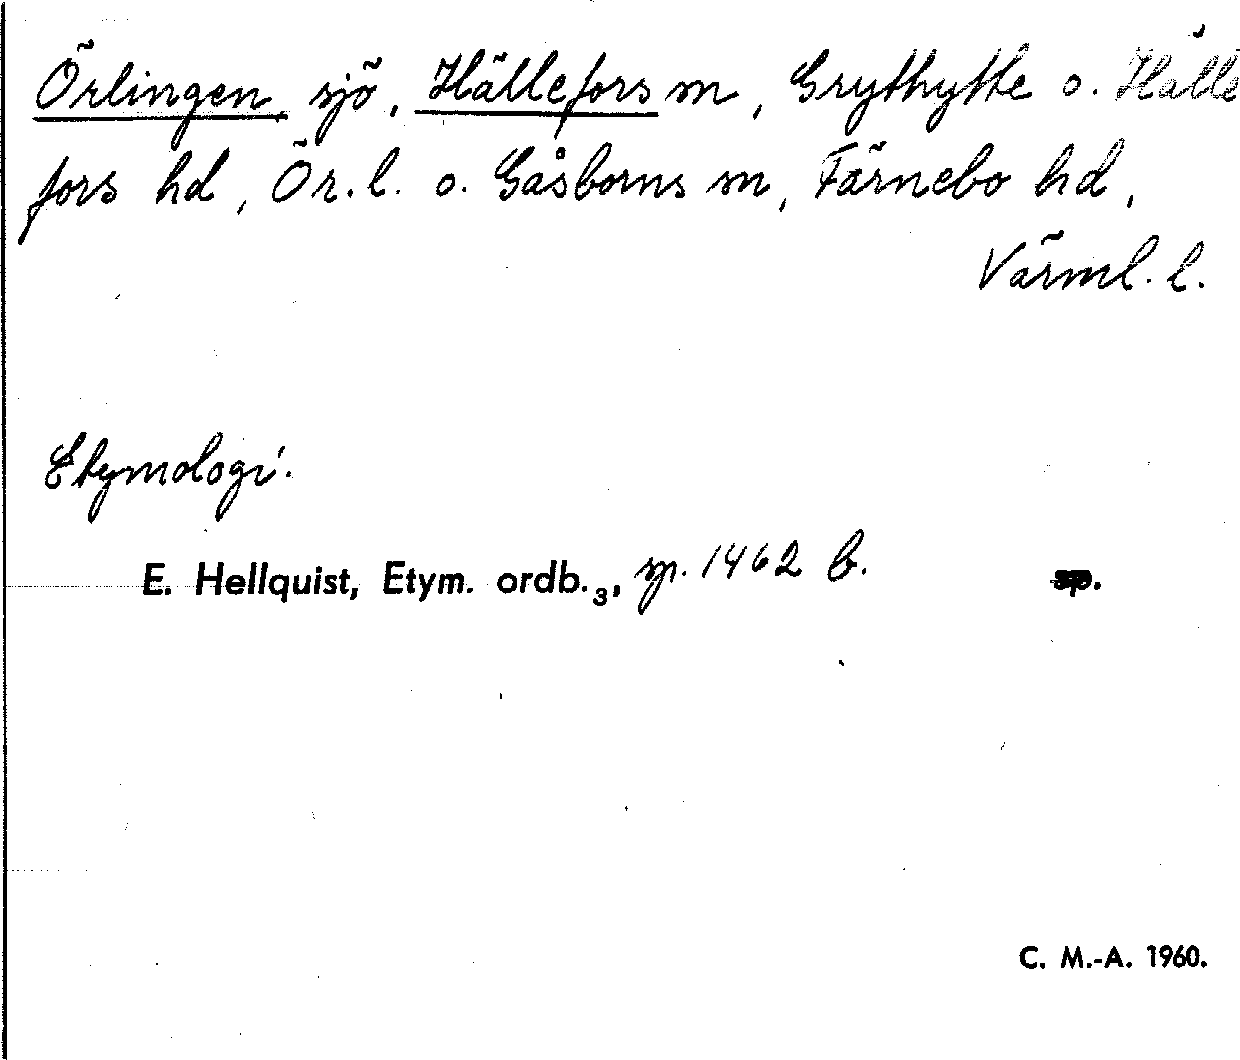 Örlingen, sjö, Hällefors sn, Grythytte o. Hälle
fors hd, Ör. l. o. Gåsborns sn, Färnebo hd,
Värml. l.
Etymologi.
E. Hellquist, Etym. ordb.3, sp. 1462 b. sp.
C. M.-A. 1960.